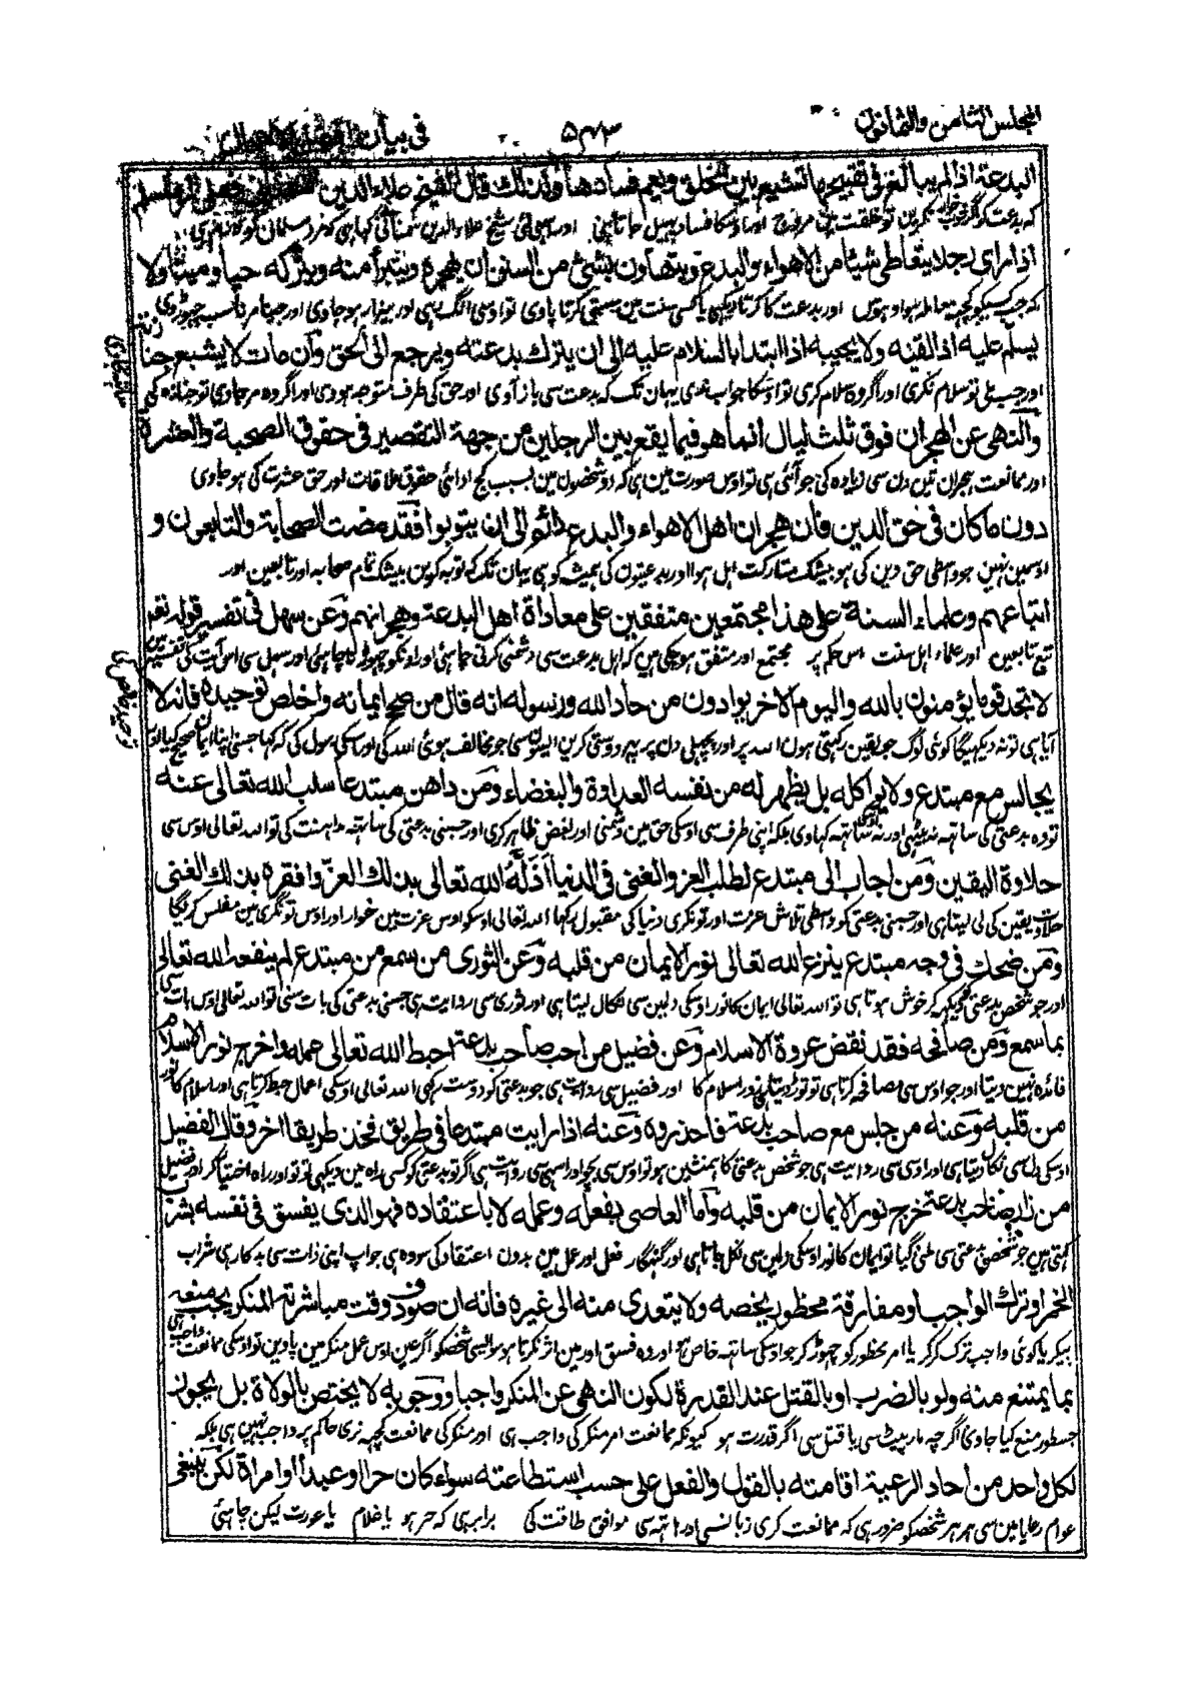 المجلس الثامن والثمانون
۵۴۳
فی بیان
البدعة اذا لم يبالغ فى تقبيحها تشيع بين الخلق ويعم فسادها ولذلك قال الشيخ علاء الدين
کہ بدعت کو اگر نکرین تو خلقت مین مروج اور اوسکا فساد پہیل جاتا ہی اور اسی لئی شیخ علاء الدین سمنانی کہا ہی کہ فرد مسلمان کو لازم ہی
اذا راى رجلا يتعاطى شيئا من الاهواء والبدع ويتهاون بشئ من السنن ان يهجره ويتبرأ منه ويتركه حيا وميتا ولا
اور بدعت کا کرتا دیکہی یا کسی سنت مین سستی کرتا پاوی تو اوسی الگ رہی اور بیزار ہو جاوی اور جیتا مرتا سب چہوڑ دی
يسلم عليه اذا لقيه ولا يجيبه اذا ابتدا بالسلام عليه الى ان يترك بدعته ويرجع الى الحق وان مات لا يشيع جنا
اور جب ملی تو سلام نکری اور اگر وہ سلام کری تو اوسکا جواب ندی یہان تک کہ بدعت سی باز آوی اور حق کی طرف متوجہ ہووی اور اگر وہ مر جاوی تو جنازہ کی
والنهى عن الهجران فوق ثلث ليال انما هو فيما يقع بين الرجلين من جهة التقصير فى حقوق الصحبة والعشرة
اور ممانعت ہجران تین دن سی زیادہ کی جو آئی ہی تو اوس صورت مین ہی کہ دو شخصون مین بسبب کج ادائی حقوق ملاقات اور حق عشرت کی ہو جاوی
دون ما كان فى حق الدين فان هجران اهل الاهواء والبدع دائم الى ان يتوبوا فقد مضت الصحابة والتابعون و
اوسمین نہین جو واسطی حق دین کی ہو بیشک متارکت اہل ہوا اور بدعتیون کی ہمیشہ کو ہی یہان تک کہ توبہ کرین بیشک تمام صحابہ اور تابعین اور
اتباعهم وعلماء السنة على هذا مجتمعين متفقين على معاداة اهل البدعة وهجرانهم وعن سهل فى تفسير قوله تعا
تبع تابعین اور علماء اہل سنت اس حکم پر مجتمع اور متفق ہو چکی ہین کہ اہل بدعت سی دشمنی کرنی چاہئی اور اونکو چہوڑنا چاہئی اور سہل سی اس آیت کی تفسیر مین
لا تجد قوما يؤمنون بالله واليوم الاخر يوادون من حاد الله ورسوله انه قال من صح ايمانه واخلص توحيده فانه لا
آیا ہی تو نہ دیکہیگا کوئی لوگ جو یقین رکہتی ہون اللہ پر اور پچہلی دن پر پہر دوستی کرین ایسون سی جو مخالف ہوئی اللہ کی اور اسکی رسول کی کہ کہا جسنی اپنا ایمان صحیح کیا
يجالس مع مبتدع ولا يواكله بل يظهر له من نفسه العداوة والبغضاء ومن داهن مبتدعا سلب الله تعالى عنه
تو وہ بدعتی کی ساتہہ نہ بیٹہی اور نہ ساتہہ کہاوی بلکہ اپنی طرف سی اوسکی حق مین دشمنی اور بغض ظاہر کری اور جسنی بدعتی کی ساتہہ مداہنت کی تو اللہ تعالی اوس سی
حلاوة اليقين ومن اجاب الى مبتدع لطلب العز والغنى فى الدنيا اذله الله تعالى بذلك العز وافقره بذلك الغنى
حلاوت یقین کی لی لیتا ہی اور جسنی بدعتی کو واسطی تلاش عزت اور تونگری دنیا کی مقبول رکہا اللہ تعالی اوسکو اوس عزت مین خوار اور اوس تونگری مین مفلس کریگا
ومن ضحك فى وجه مبتدع ينزع الله تعالى نور الايمان من قلبه وعن الثورى من سمع من مبتدع لم ينفعه الله تعالى
اور جو شخص بدعتی کو دیکہہ کر خوش ہوتا ہی تو اللہ تعالی ایمان کا نور اوسکی دلین سی نکال لیتا ہی اور ثوری سی روایت ہی جسنی بدعتی کی بات سنی تو اللہ تعالی اوس بات سی
بما سمع ومن صافحه فقد نقض عروة الاسلام وعن فضيل من احب صاحب بدعة احبط الله تعالى عمله واخرج نور الاسلام
فائدہ نہین دیتا اور جو اوس سی مصافحہ کرتا ہی تو توڑ دیتا ہی اسلام کا اور فضیل سی روایت ہی جو بدعتی کو دوست رکہی اللہ تعالی اوسکی اعمال حبط کرتا ہی اور اسلام کا نور
من قلبه وعنه من جلس مع صاحب بدعة فاحذروه وعنه اذا رايت مبتدعا فى طريق فخذ طريقا اخر وقال الفضيل
اوسکی دل سی نکال دیتا ہی اور اوسی سی روایت ہی جو شخص بدعتی کا ہمنشین ہو تو اوس سی بچو اور اسی سی روایت ہی اگر تو بدعتی کو کسی راہ مین دیکہی تو تو اور راہ اختیار کر اور فضیل
من زار صاحب بدعة خرج نور الايمان من قلبه واما العاصى بفعله وعمله لا باعتقاده فهو الذى يفسق فى نفسه بشرب
کہتی ہین جو شخص بدعتی سی ملنی گیا تو ایمان کا نور اوسکی دلین سی نکل جاتا ہی اور گنہگار فعل اور عمل مین بدون اعتقاد کی سو وہ ہی جو آپ اپنی ذات سی بدکار ہی شراب
الخمر او ترك الواجب او مفارقة محظور يخصه ولا يتعدى منه الى غيره فانه ان صودف وقت مباشرة المنكر يجب منعه
پیکر یا کوئی واجب ترک کر کر یا امر محظور کو چہوڑ کر جو اوسکی ساتہہ خاص ہی اور وہ فسق اور مین اثر نکرتا ہو سو ایسی شخص کو اگر عین اوس عمل منکر مین پاوین تو اوسکی ممانعت واجب ہی
بما يمتنع منه ولو بالضرب او بالقتل عند القدرة لكون النهى عن المنكر واجبا ووجوبه لا يختص بالولاة بل يجوز
جسطور منع کیا جاوی اگرچہ مار پیٹ سی یا قتل سی اگر قدرت ہو کیونکہ ممانعت امر منکر کی واجب ہی اور منکر کی ممانعت کچہہ نری حاکم پر واجب نہین ہی بلکہ
لكل واحد من احاد الرعية اقامته بالقول والفعل على حسب استطاعته سواء كان حرا او عبدا او امراة لكن ينبغى
عوام رعایا مین سی ہر ہر شخص کو ضرور ہی کہ ممانعت کری زبانسی اور ہاتہہ سی موافق طاقت کی برابر ہی کہ حر ہو یا غلام یا عورت لیکن چاہئی